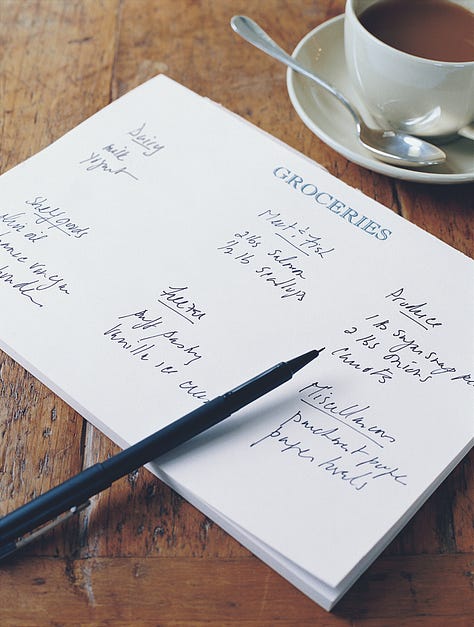 GROCERIES
Dairy
milk
Yogurt
Shelf goods
oil
Meat & Fish
2 lbs Salmon
1/2 lb Scallops
Freezer
puff pastry
Vanilla ice
Produce
1 lb sugar snap
2 lbs Onions
Carrots
Miscellaneous
parchment paper
paper towels